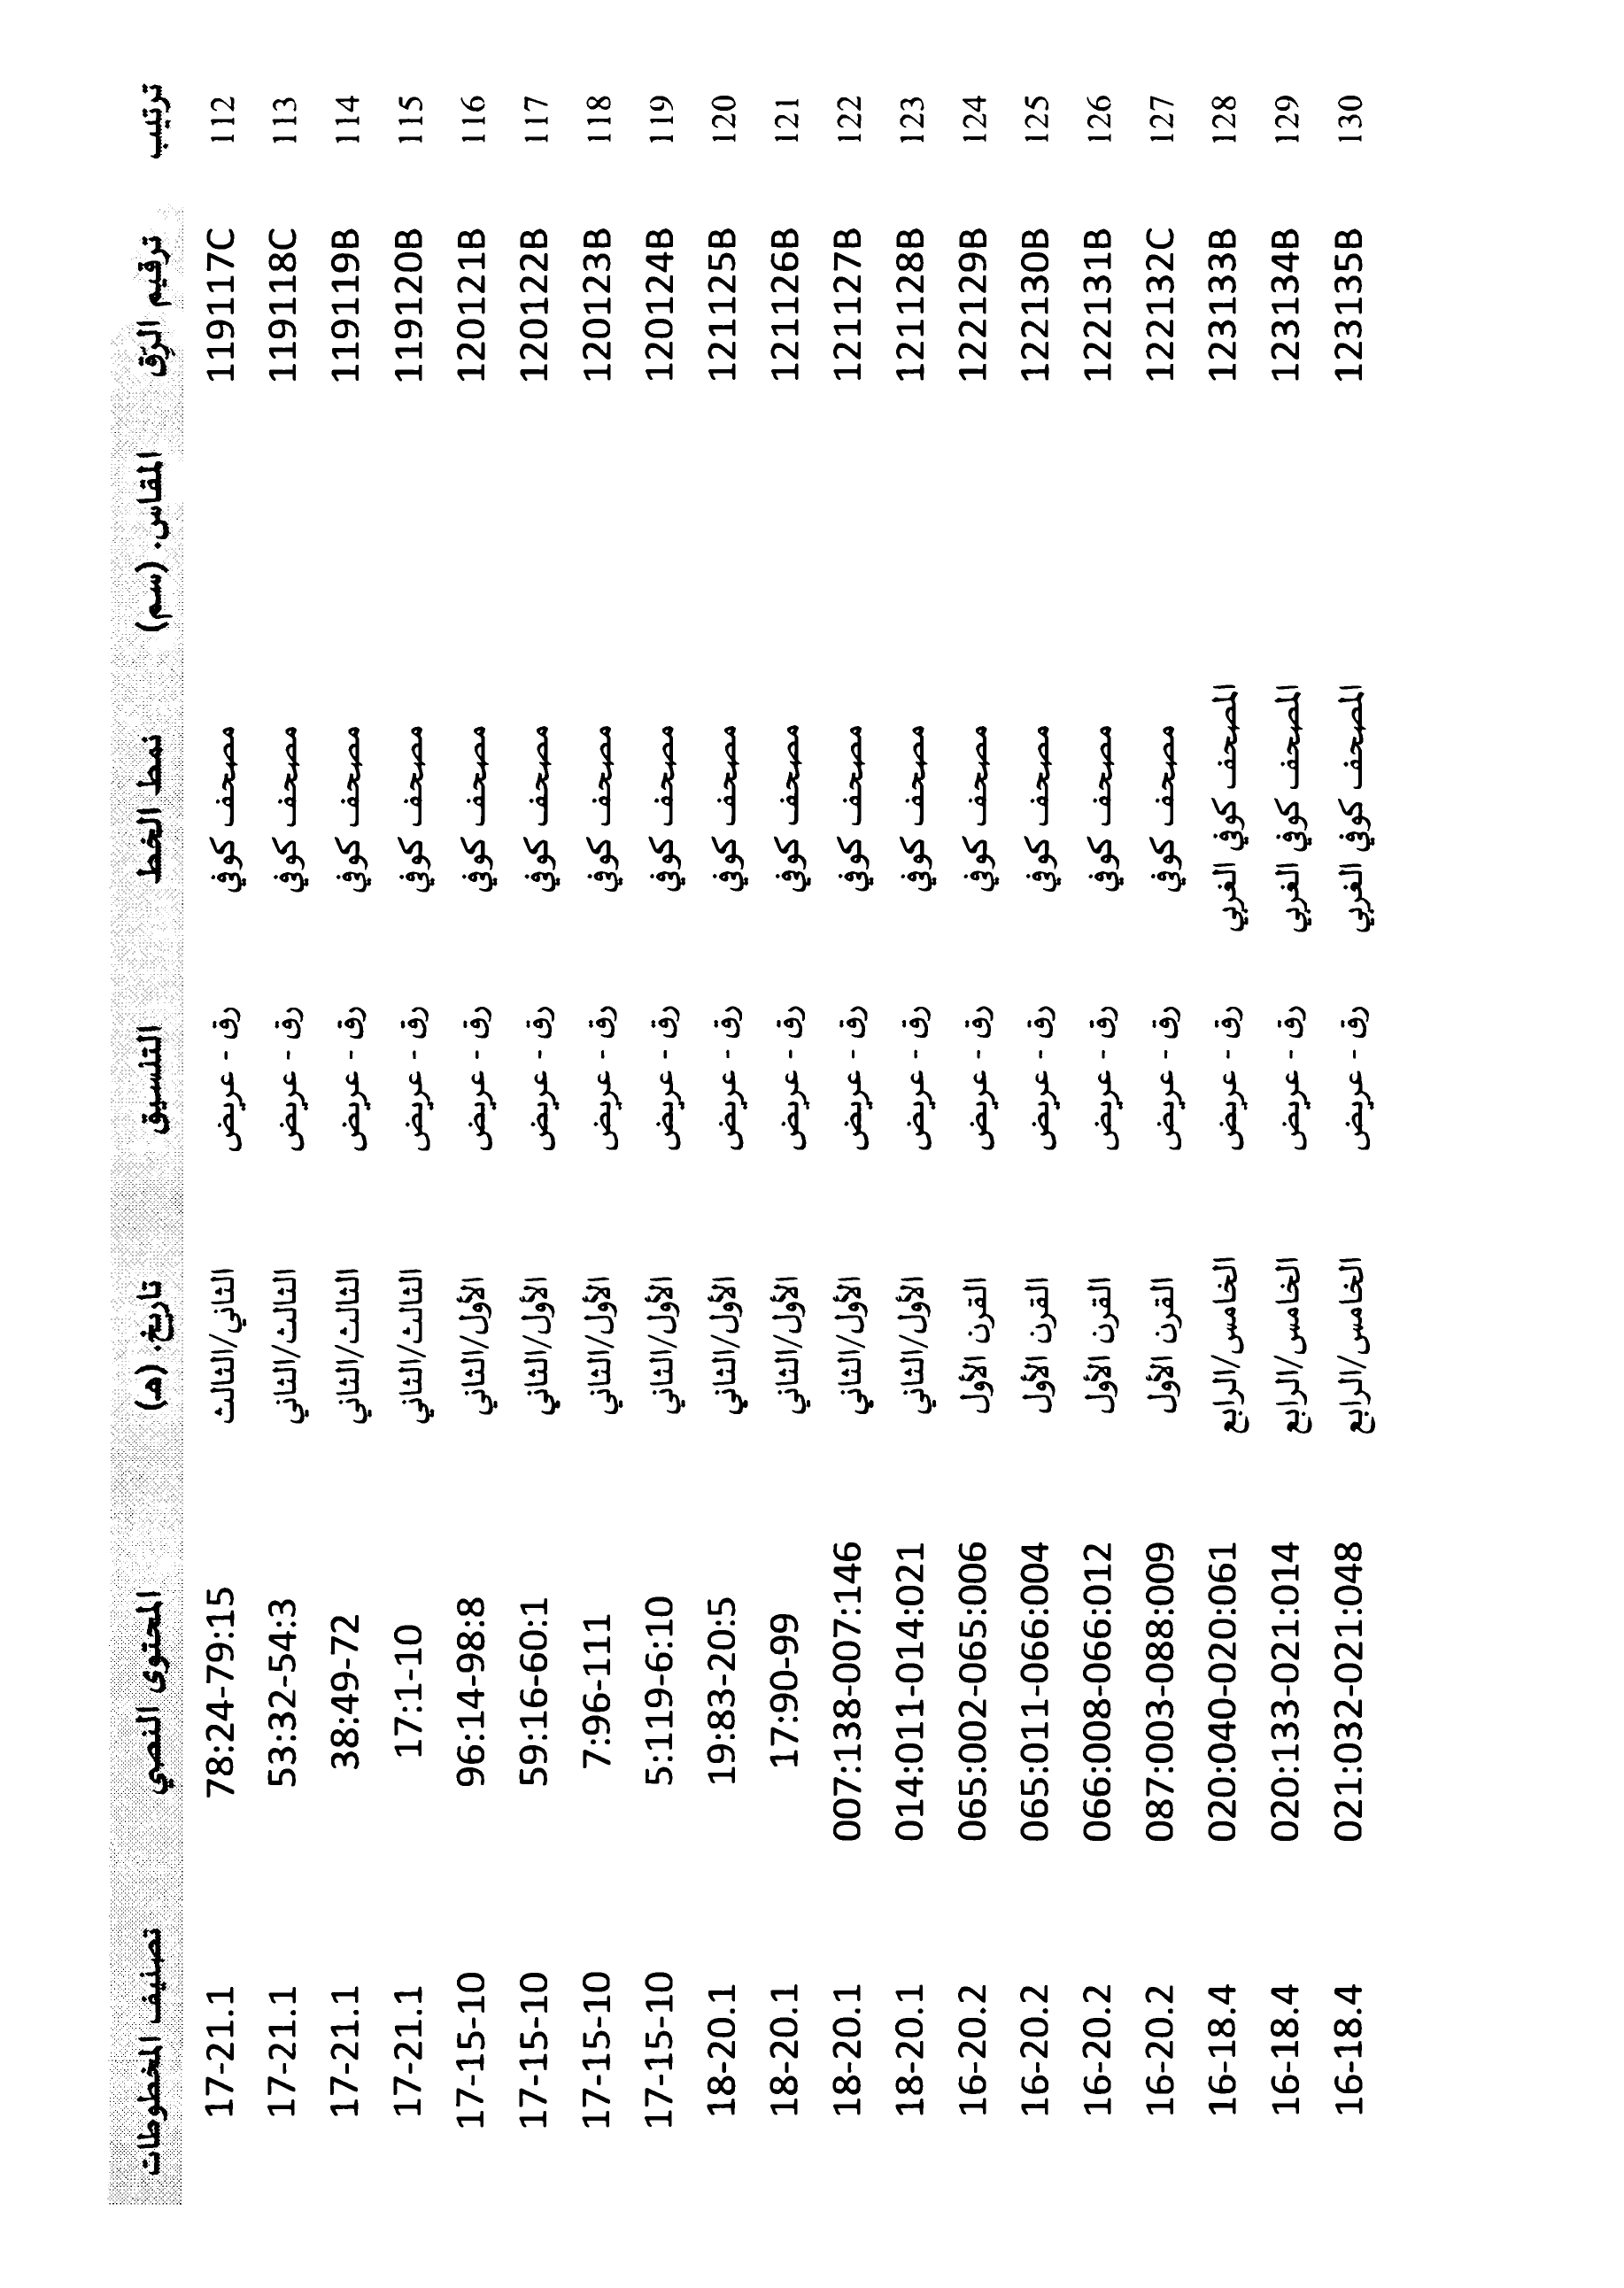 ترتيب ترقيم الرّق المقاس. (سم) نمط الخط التنسيق تاريخ. (هـ) المحتوى النصي تصنيف المخطوطات
112 1191117C مصحف كوفي رق - عريض الثاني/الثالث 78:24-79:15 17-21.1
113 1191118C مصحف كوفي رق - عريض الثالث/الثاني 53:32-54:3 17-21.1
114 1191119B مصحف كوفي رق - عريض الثالث/الثاني 38:49-72 17-21.1
115 1191120B مصحف كوفي رق - عريض الثالث/الثاني 17:1-10 17-21.1
116 1201121B مصحف كوفي رق - عريض الأول/الثاني 96:14-98:8 17-15-10
117 1201122B مصحف كوفي رق - عريض الأول/الثاني 59:16-60:1 17-15-10
118 1201123B مصحف كوفي رق - عريض الأول/الثاني 7:96-111 17-15-10
119 1201124B مصحف كوفي رق - عريض الأول/الثاني 5:119-6:10 17-15-10
120 1211125B مصحف كوفي رق - عريض الأول/الثاني 19:83-20:5 18-20.1
121 1211126B مصحف كوفي رق - عريض الأول/الثاني 17:90-99 18-20.1
122 1211127B مصحف كوفي رق - عريض الأول/الثاني 007:138-007:146 18-20.1
123 1211128B مصحف كوفي رق - عريض الأول/الثاني 014:011-014:021 18-20.1
124 1221129B مصحف كوفي رق - عريض القرن الأول 065:002-065:006 16-20.2
125 1221130B مصحف كوفي رق - عريض القرن الأول 065:011-066:004 16-20.2
126 1221131B مصحف كوفي رق - عريض القرن الأول 066:008-066:012 16-20.2
127 1221132C مصحف كوفي رق - عريض القرن الأول 087:003-088:009 16-20.2
128 1231133B المصحف كوفي الغربي رق - عريض الخامس/الرابع 020:040-020:061 16-18.4
129 1231134B المصحف كوفي الغربي رق - عريض الخامس/الرابع 020:133-021:014 16-18.4
130 1231135B المصحف كوفي الغربي رق - عريض الخامس/الرابع 021:032-021:048 16-18.4